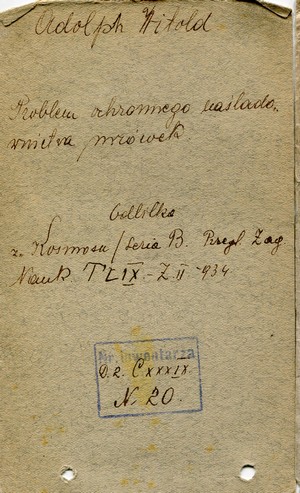 Adolph Witold
Problem ochronnego naślado-
wnictwa mrówek.
Odbitka
z. Kosmosu / Seria B. Przgl. Zag.
Nauk. T LIX - Z II - 934
Nr. inwentarza
D. 2. CXXXIX
N. 20.